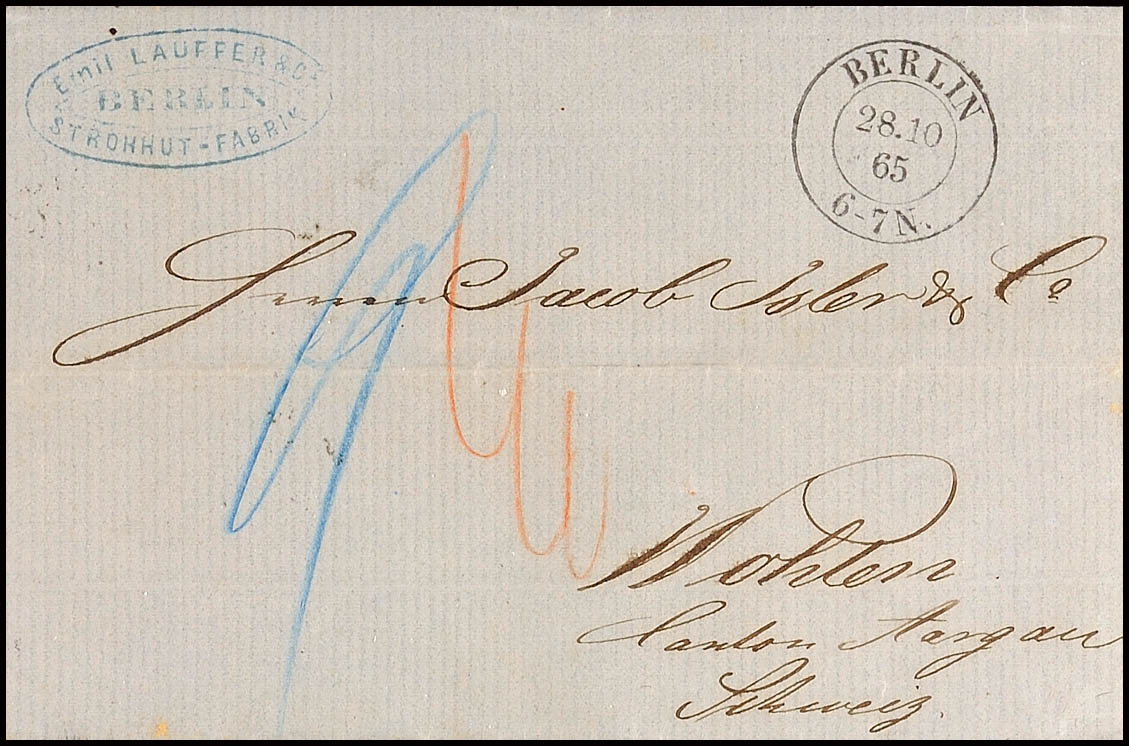 Emil LAUFFER & Co
BERLIN
STROHHUT-FABRIK
BERLIN
28.10
65
6-7N.
Herren Jacob Isler & Co
Wohlen
Canton Aargau
Schweiz.